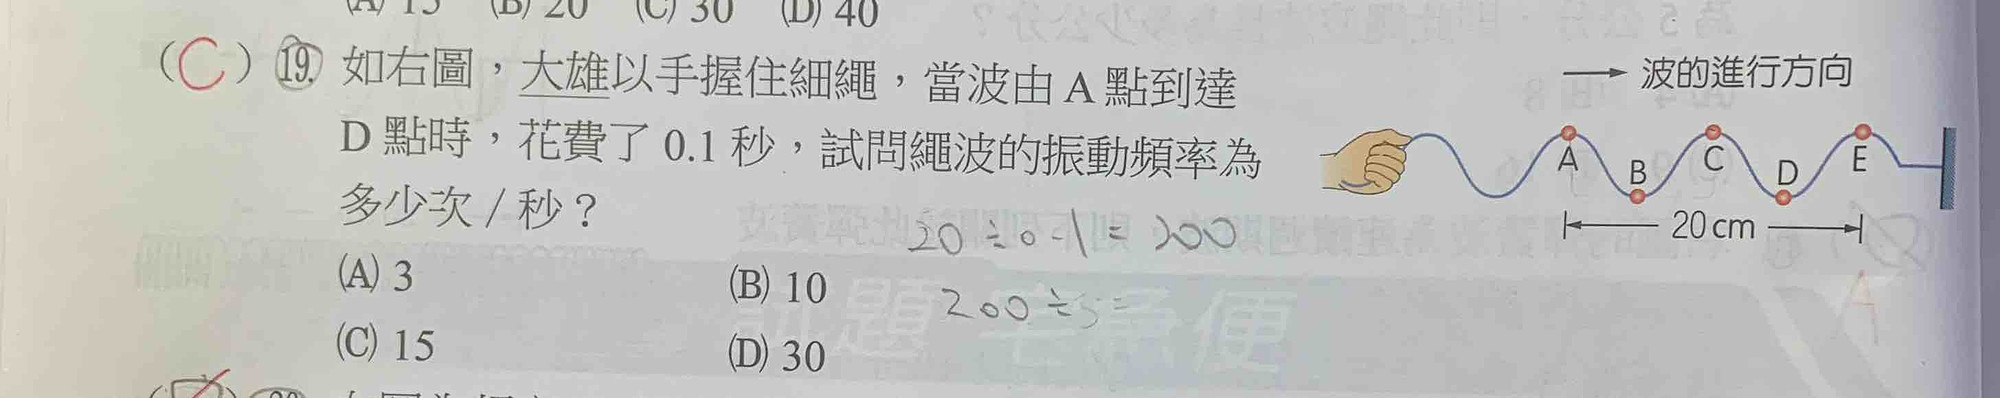 (A) 15 (B) 20 (C) 30 (D) 40
(C) 19. 如右圖，大雄以手握住細繩，當波由 A 點到達
D 點時，花費了 0.1 秒，試問繩波的振動頻率為
多少次／秒？
(A) 3 (B) 10
(C) 15 (D) 30
波的進行方向
A B C D E
20 cm
20÷0.1=200
200÷5=
試題宅急便
A